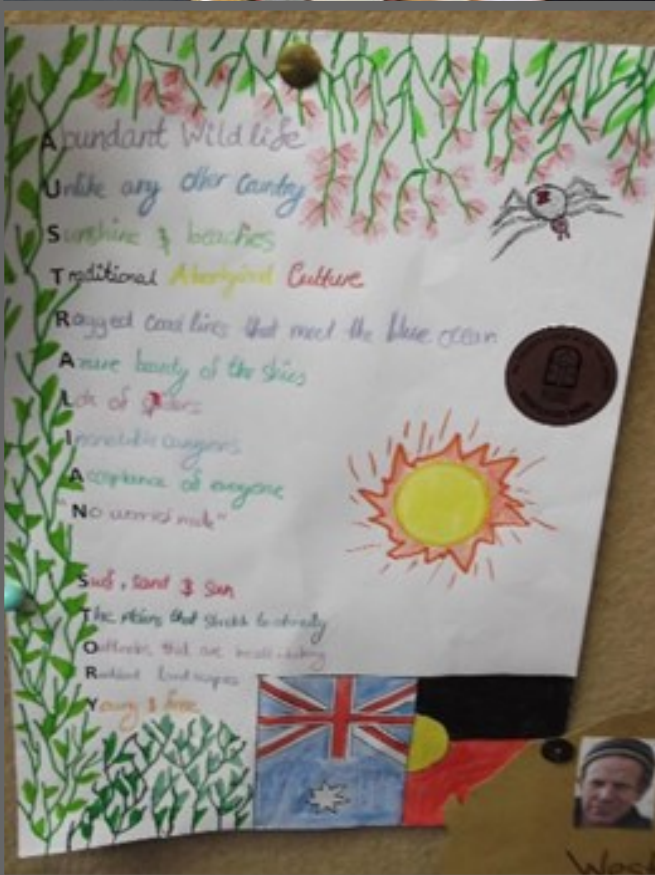 Abundant Wildlife
Unlike any other Country
Sunshine & beaches
Traditional Aboriginal Culture
Rugged coastlines that meet the blue ocean
Azure beauty of the skies
Lots of spiders
Incredible
Acceptance of everyone
"No worries mate"
Surf, sand & sun
The plains that stretch to eternity
Outbacks that are breath-taking
Radiant landscapes
Young & free
West